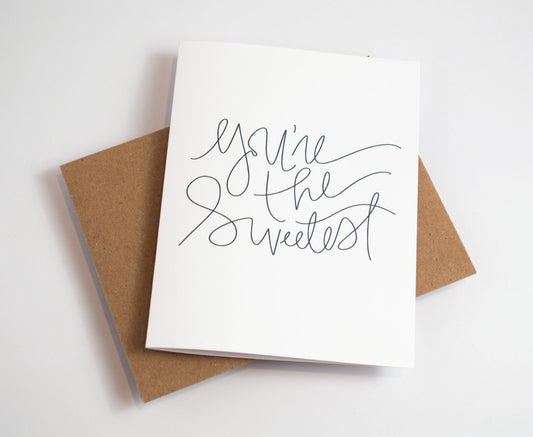 you're
the
Sweetest